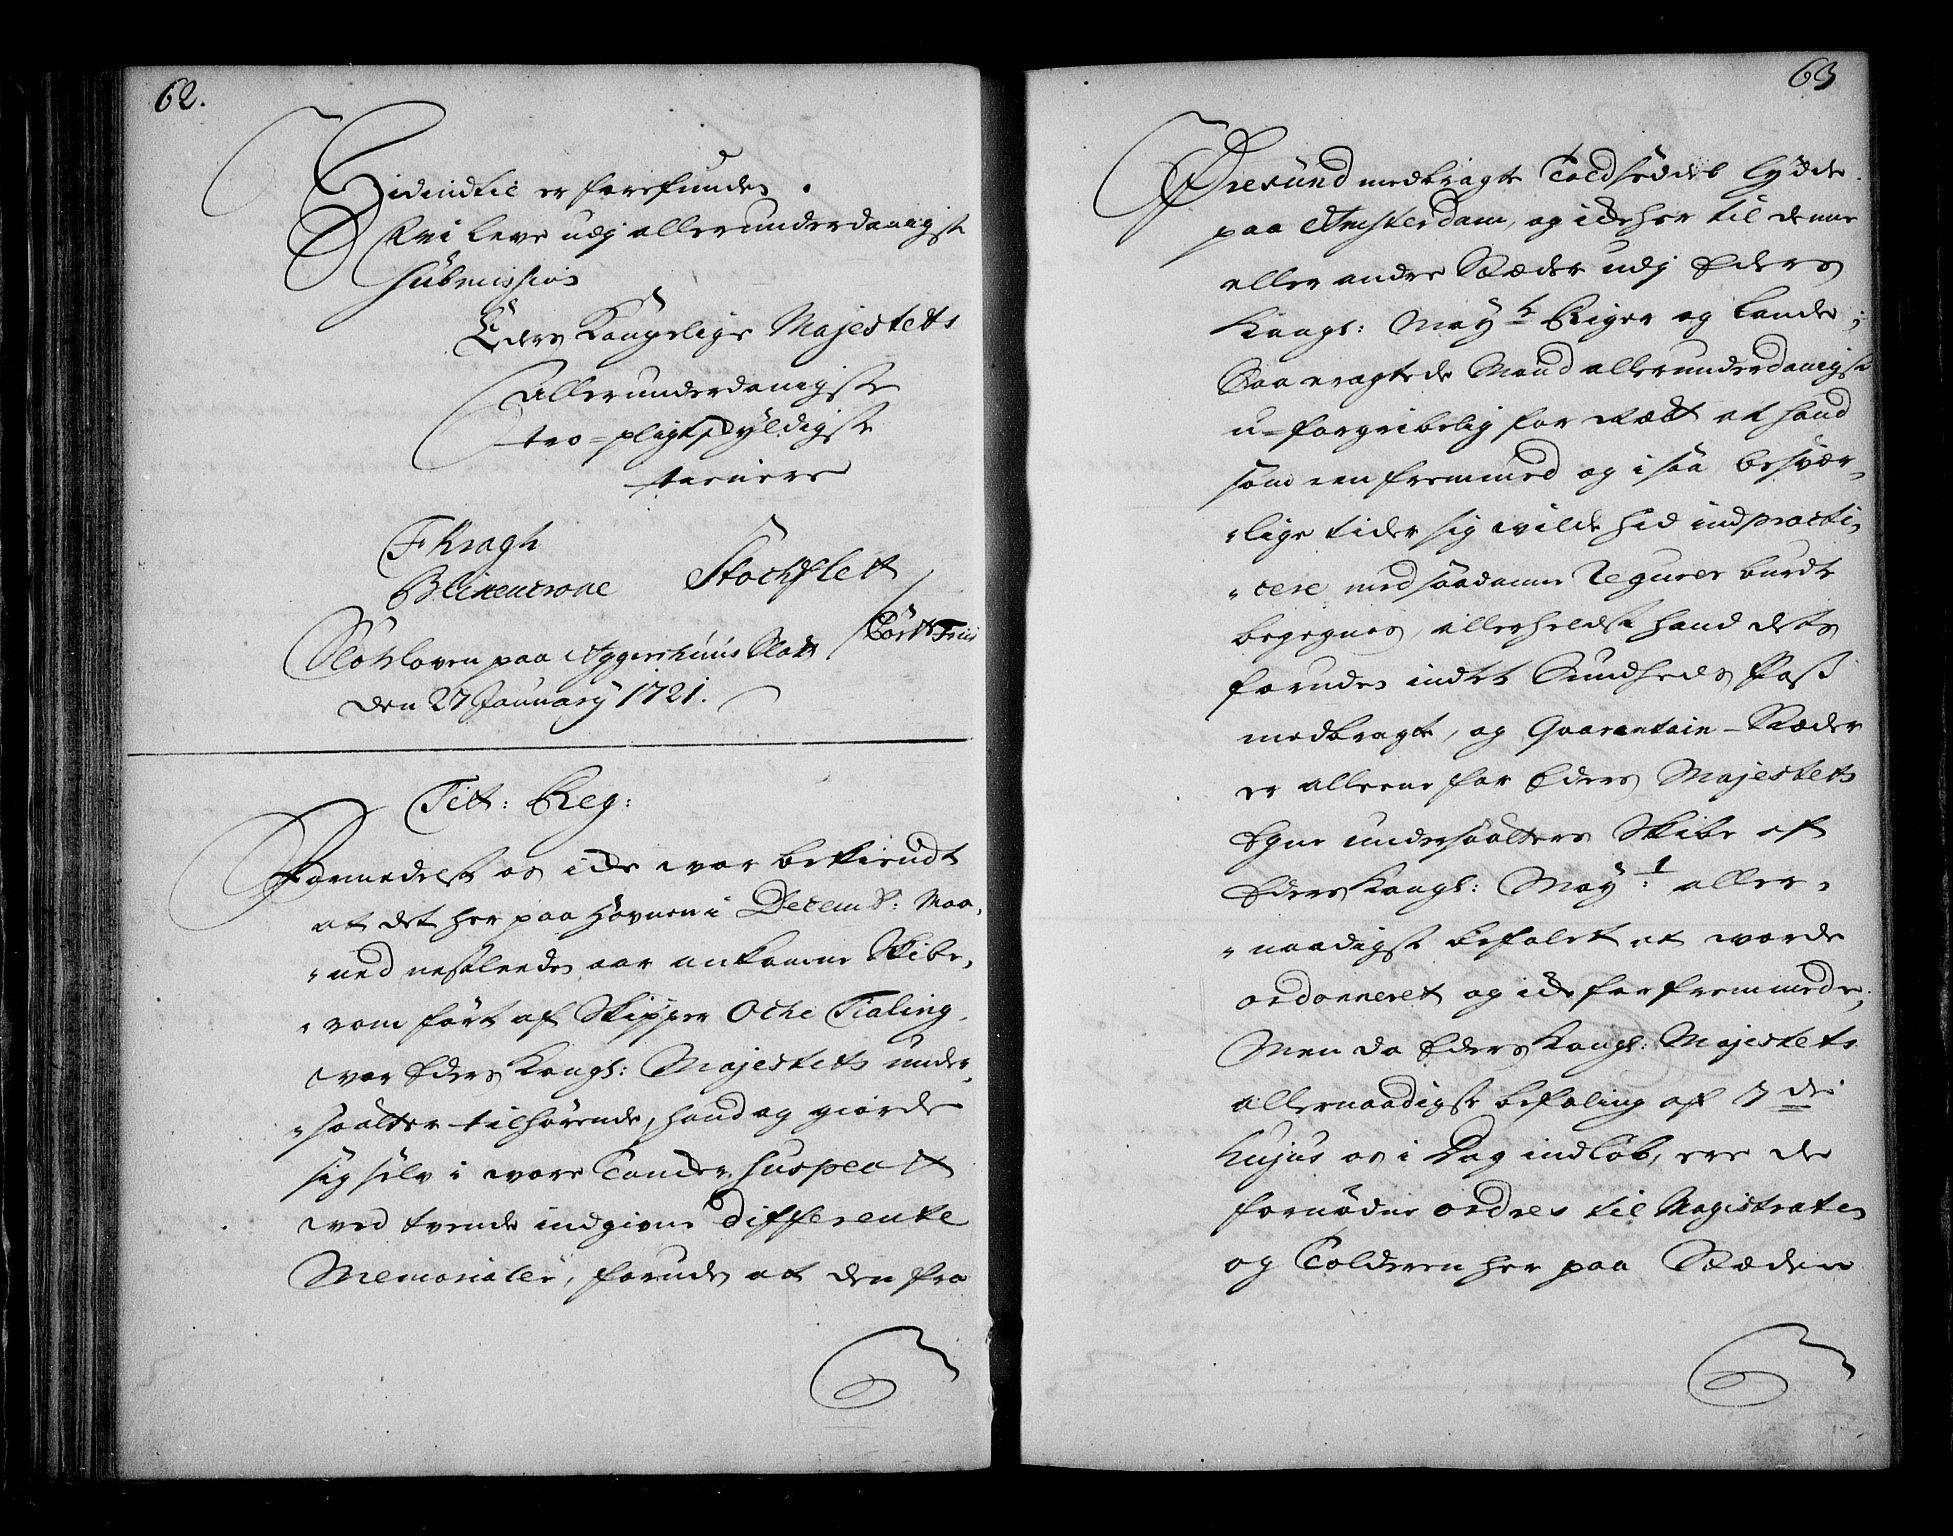 62.
Hidindtil er forefunden.
Vi leve udj allerunderdanigst
Submission
Eders Kongelige Majestetts
allerunderdanigste
tro-pligtskyldigste
tienere
F Kragh
Blixencrone Stochflett
Gört Friis
Slotsloven paa Aggershuus Slott
den 27 January 1721.
Titt: Reg:
Formedelst os icke var bekiendt
at det her paa Hovnen i Decembr: Maa,
„ned nestleeden aar ankomne Skib,
„som fört af Skipper Ocke Tialing,
var Eders Kongl: Majestets under,
„saatter tilhörende, hand og giorde
sig selv i vore Tancker suspect
ved tvende indgivne differente
Memorialer, foruden at den fra
63
Öresund medbragte Toldseddel lydde
paa Amsterdam, og icke her til denne
eller andre Stæder udj Eders
Kongl: Mayts Riger og Lande;
Saa eragtede Mand allerunderdanigst
u-forgribelig for Rætt at hand
som een fremmed og i saa besvær,
„lige tider sig vilde hid indpracti,
„cere med saadanne Regurer burde
begegnes, allerhelst hand dets
foruden indtet Sundheds Pass
medbragte, og Quarantain-Stæder
er alleene for Eders Majestets
Egne undersaatters Skibe af
Eders Kongl: Mayt: aller,
„naadigst befalet at worde
ordonneret og icke for fremmede;
Men da Eders Kongl: Majestets
allernaadigste befaling af 7de
hujus os i Dag indlöb, ere de
fornödne ordres til Magistraten
og Tolderen her paa Stæden